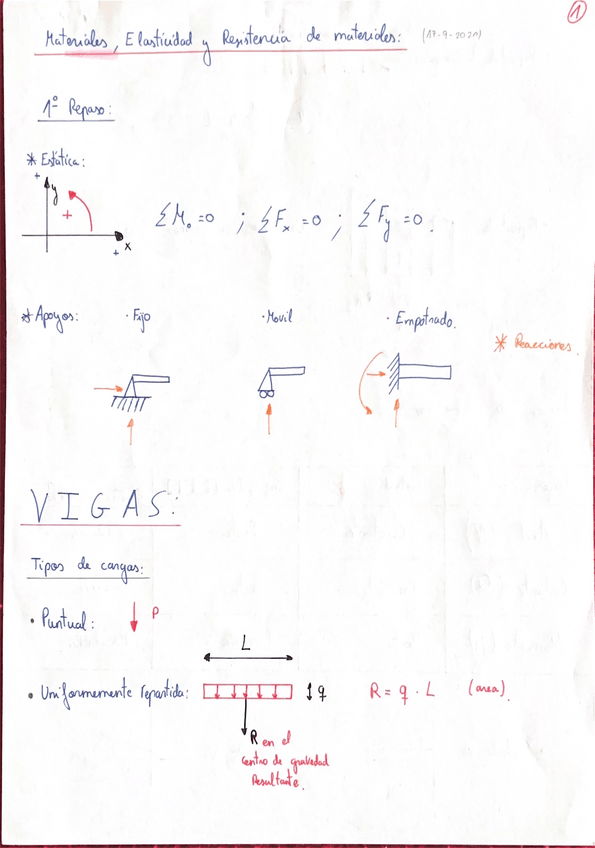 1
Materiales, Elasticidad y Resistencia de materiales: (17-9-2020)
1º Repaso:
* Estática:
+
y
+
x
+
ΣM₀ =0 ; ΣFx =0 ; ΣFy =0.
* Apoyos: · Fijo · Movil · Empotrado.
* Reacciones.
VIGAS:
Tipos de cargas:
• Puntual: P
L
• Uniformemente repartida: q R = q · L (area).
R en el
centro de gravedad
Resultante.